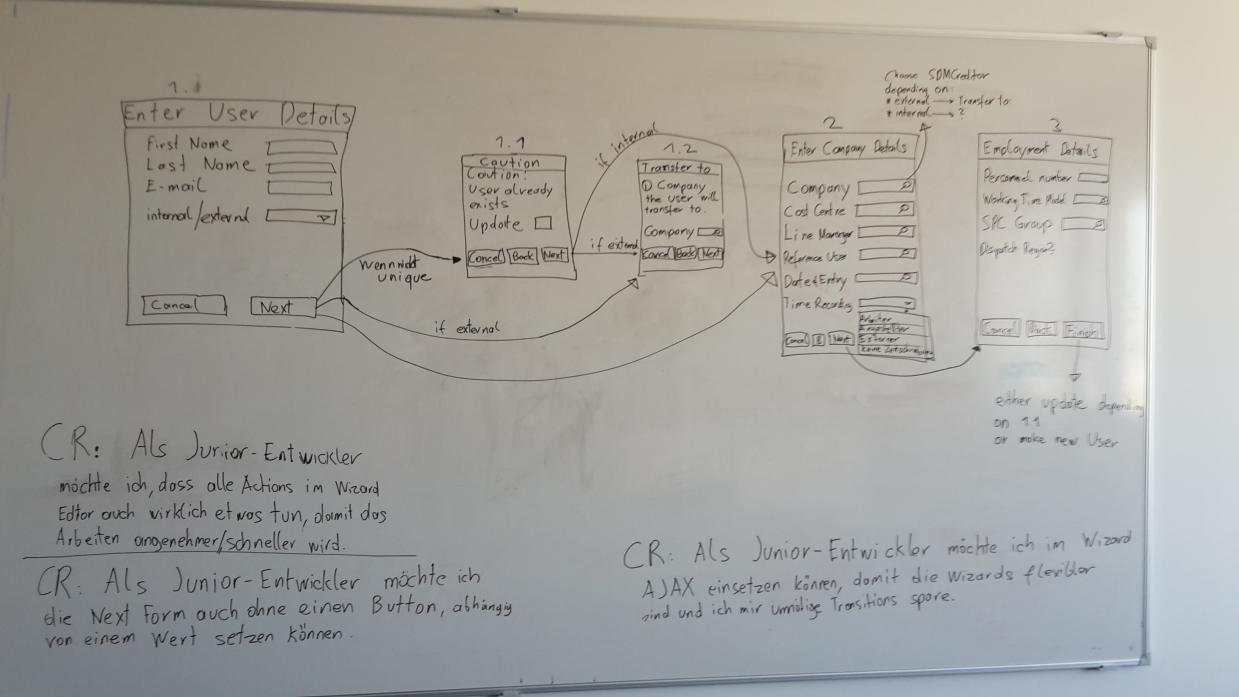 1.
Enter User Details
First Name
Last Name
E-mail
internal/external
Cancel
Next
Wenn nicht
unique
if external
1.1
Caution
Caution:
User already
exists
Update
Cancel Back Next
if internal
if external
1.2
Transfer to
Company
the user will
transfer to.
Company
Cancel Back Next
Choose SDMCreditor
depending on:
* external → Transfer to
* internal → ?
2
Enter Company Details
Company
Cost Centre
Line Manager
Reference User
Date of Entry
Time Recording
Arbeiter
Angestellter
Externer
Keine
Cancel B Next
3
Employment Details
Personnel number
Working Time Model
SPC Group
Dispatch Region?
Cancel Finish
either update depending
on 1.1
or make new User
CR: Als Junior-Entwickler
möchte ich, dass alle Actions im Wizard
Editor auch wirklich etwas tun, damit das
Arbeiten angenehmer/schneller wird.
CR: Als Junior-Entwickler möchte ich
die Next Form auch ohne einen Button, abhängig
von einem Wert setzen können.
CR: Als Junior-Entwickler möchte ich im Wizard
AJAX einsetzen können, damit die Wizards flexibler
sind und ich mir unnötige Transitions spare.